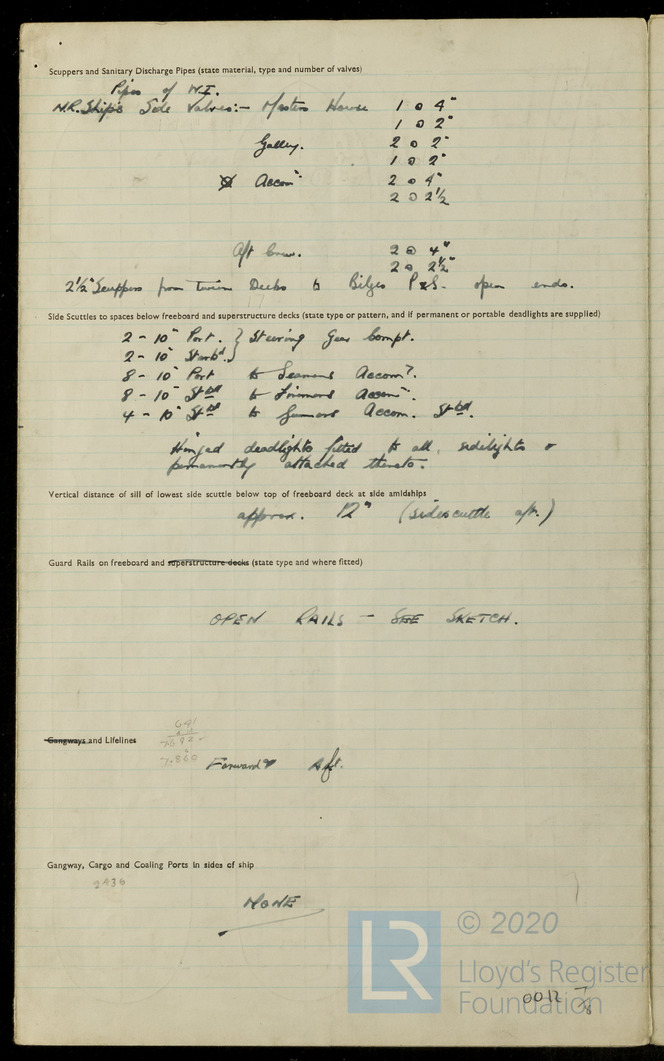 Scuppers and Sanitary Discharge Pipes (state material, type and number of valves)
Pipes of W.I.
N.R. Ship's Side Valves:- Masters House 1 @ 4"
1 @ 2"
Galley. 2 @ 2"
1 @ 2"
Accom: 2 @ 4"
2 @ 2½
Aft Crew. 2 @ 4"
2 @ 2½"
2½" Scuppers from Tween Decks to Bilges P&S. open ends.
Side Scuttles to spaces below freeboard and superstructure decks (state type or pattern, and if permanent or portable deadlights are supplied)
2 - 10" Port. } Steering Gear Compt.
2 - 10" Starbd. }
8 - 10" Port to Seamens Accom.
8 - 10" Stbd to Firemens Accom.
4 - 10" Stbd to Gunners Accom. Stbd.
Hinged deadlights fitted to all sidelights &
permanently attached thereto.
Vertical distance of sill of lowest side scuttle below top of freeboard deck at side amidships
approx. 12" (sidescuttle aft.)
Guard Rails on freeboard and superstructure decks (state type and where fitted)
OPEN RAILS - SEE SKETCH.
Gangways and Lifelines
7.860
Forward & Aft.
Gangway, Cargo and Coaling Ports in sides of ship
2436
NONE
LR
© 2020
Lloyd's Register
Foundation
0012 7/8